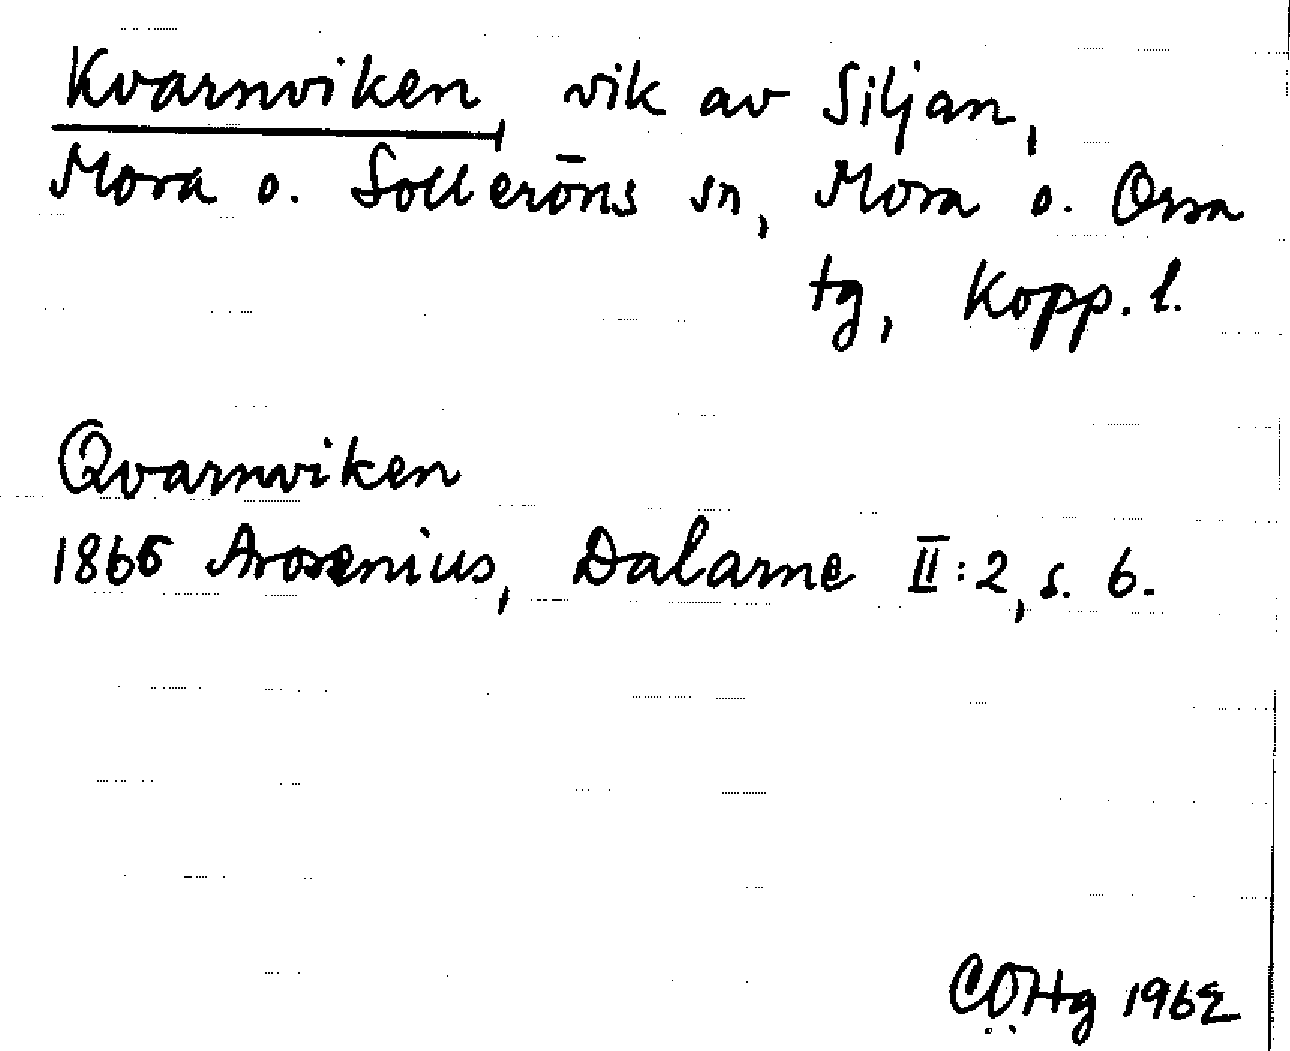 Kvarnviken, vik av Siljan,
Mora o. Solleröns sn, Mora o. Orsa
tg, Kopp. l.
Qvarnviken
1865 Arosenius, Dalarne II:2, s. 6.
CÖHg 1962